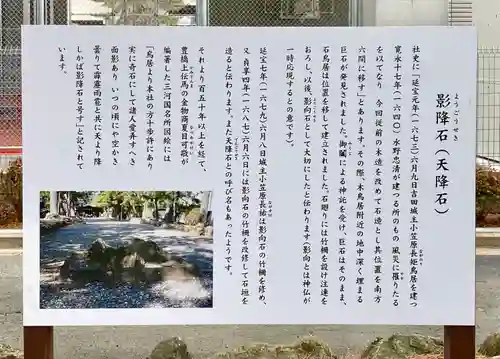 影降石（天降石）
ようごうせき
社史に「延宝元年（一六七三）六月九日吉田城主小笠原長矩鳥居を建つ
寛永十七年（一六四〇）水野忠清が建つる所のもの 風災に罹りたる
を以てなり 今回従前の木造を改めて石造とし其位置を南方
六間に移す」とあります。その際、木鳥居附近の地中深く埋まる
巨石が発見されました。御鬮による神託を受け、巨石はそのまま、
石鳥居は位置を移して建立されました。石廻りには竹柵を設け注連を
おろし、以後、影向石として大切にしたと伝わります（影向とは神仏が
一時応現するとの意です）。
延宝七年（一六七九）六月八日城主小笠原長祐は影向石の竹柵を修め、
又貞享四年（一六八七）六月六日には影向石の竹柵を改修して石垣を
造ると伝わります。また天降石との呼び名もあったようです。
それより百五十年以上を経て、
豊橋上伝馬の金物商夏目可敬が
編著した三河国名所図絵には
「鳥居より本社の方十歩許にあり
実に奇石にして諸人愛弄すべき
面影あり いつの頃にや空かき
曇りて霹靂雨雹と共に天より降
しかば影降石と号す」と記されて
います。